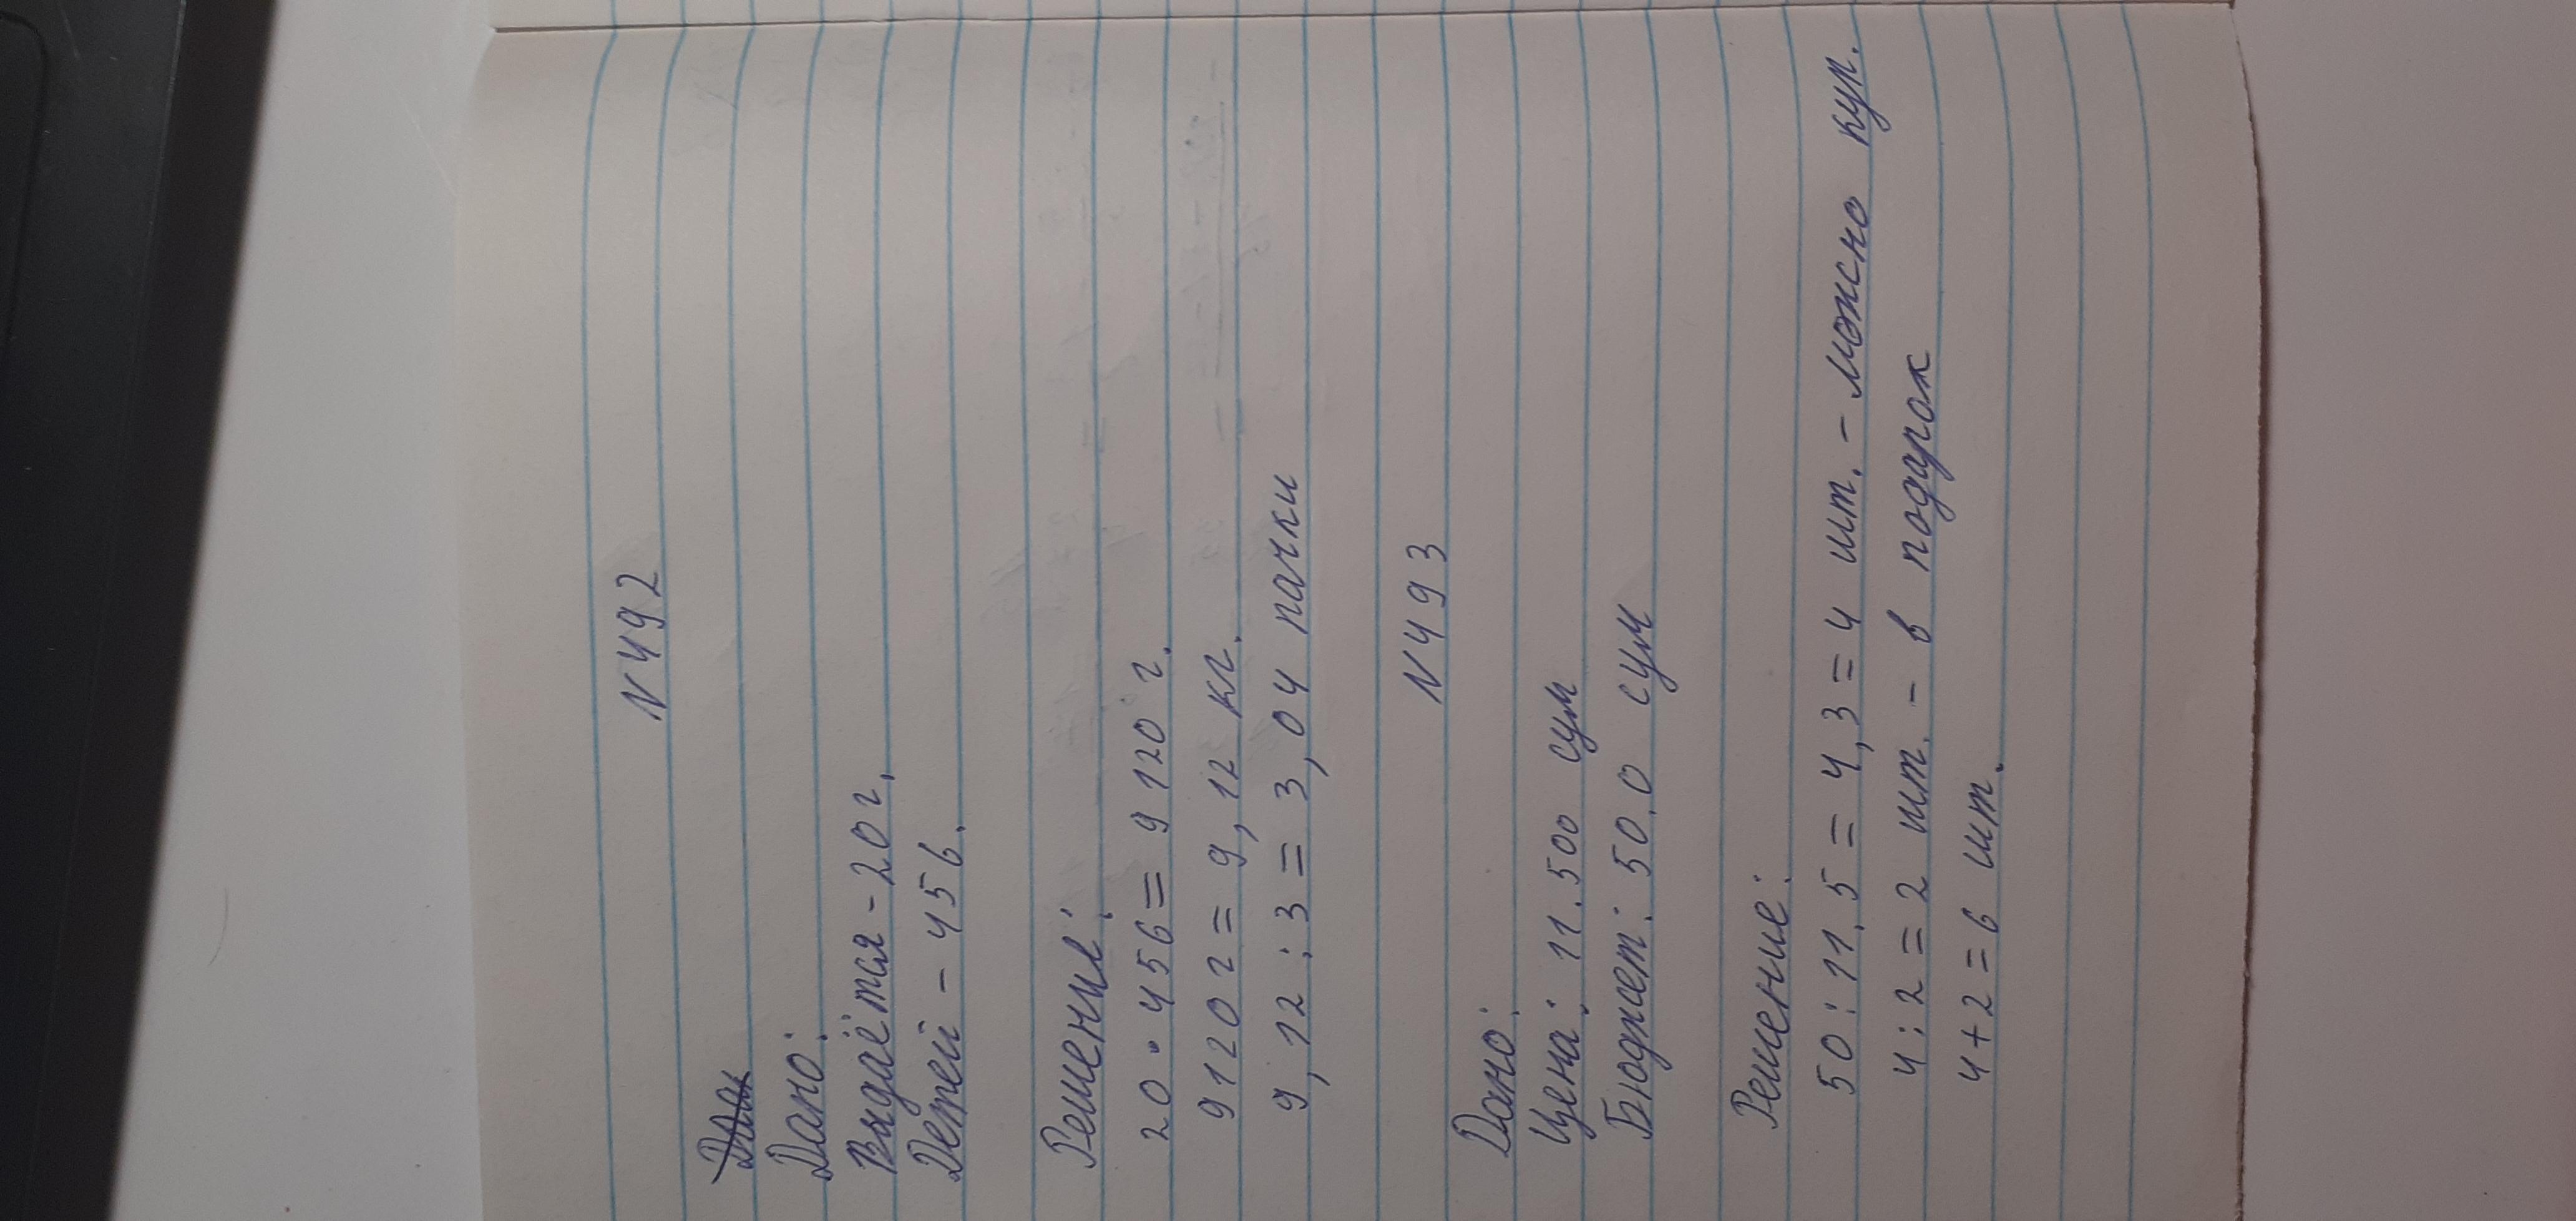 N 492
Дано:
Выдаётся - 20 г.
Детей - 456.
Решение:
20 • 456 = 9 120 г.
9120 г = 9,12 кг.
9,12 : 3 = 3,04 пачки
N 493
Дано:
Цена: 11.500 сум
Бюджет: 50.0 сум
Решение:
50 : 11.5 = 4,3 = 4 шт. - можно куп.
4 : 2 = 2 шт. - в подарок
4 + 2 = 6 шт.